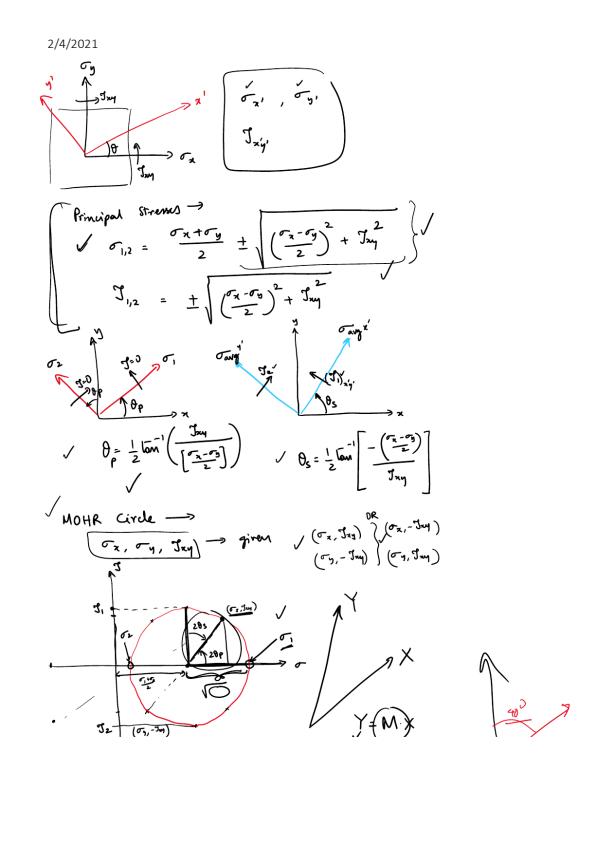 2/4/2021
σy
y'
τxy
x'
θ
σx
τxy
✓ ✓
σx' , σy'
τx'y'
Principal Stresses →
✓ σ1,2 = (σx+σy)/2 ± √( ((σx-σy)/2)² + τxy² ) } ✓
τ1,2 = ± √( ((σx-σy)/2)² + τxy² ) ✓
y y
σ2 τ=0 τ=0 σ1
θp θp
x
σavg y' τ2 σavg x'
(τ1)x'y'
θs
x
✓ θp = 1/2 tan⁻¹ ( τxy / [(σx-σy)/2] ) ✓
✓ θs = 1/2 tan⁻¹ [ -((σx-σy)/2) / τxy ]
✓ MOHR Circle →
OR
σx, σy, τxy → given ✓ (σx, τxy) } (σx, -τxy)
(σy, -τxy) } (σy, τxy)
τ
τ1
(σx, τxy) ✓
σ2 2θs 2θp σ1
σ
√
τ2 (σy, -τxy)
Y
X
Y = (M) X
90°